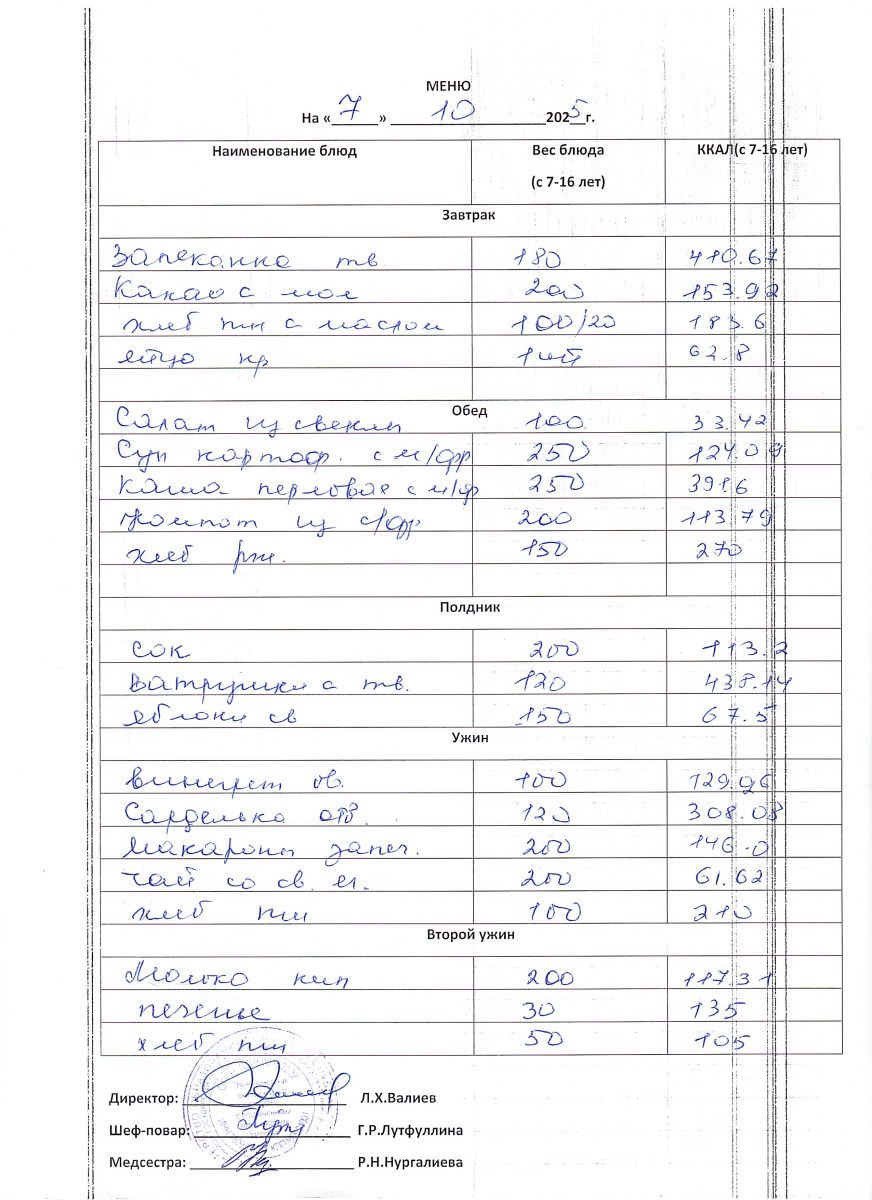 МЕНЮ
На «7» 10 2025г.
Наименование блюд Вес блюда ККАЛ(с 7-16 лет)
(с 7-16 лет)
Завтрак
Запеканка тв 180 410.67
Какао с мол 200 153.92
хлеб пш с маслом 100/20 183.6
яйцо кр 1шт 62.8
Обед
Салат из свеклы 100 33.42
Суп картоф. с м/фр 250 124.09
каша перловая с м/ф 250 391.6
компот из с/фр 200 113.79
хлеб рж. 150 270
Полдник
сок 200 113.2
Ватрушки с тв. 120 438.14
яблоки св 150 67.5
Ужин
винегрет ов. 100 129.96
Сарделька отв. 120 308.08
макароны запеч. 200 146.0
чай со св. яг. 200 61.62
хлеб пш 100 210
Второй ужин
Молоко кип 200 117.31
печенье 30 135
хлеб пш 50 105
Директор: Л.Х.Валиев
Шеф-повар: Г.Р.Лутфуллина
Медсестра: Р.Н.Нургалиева